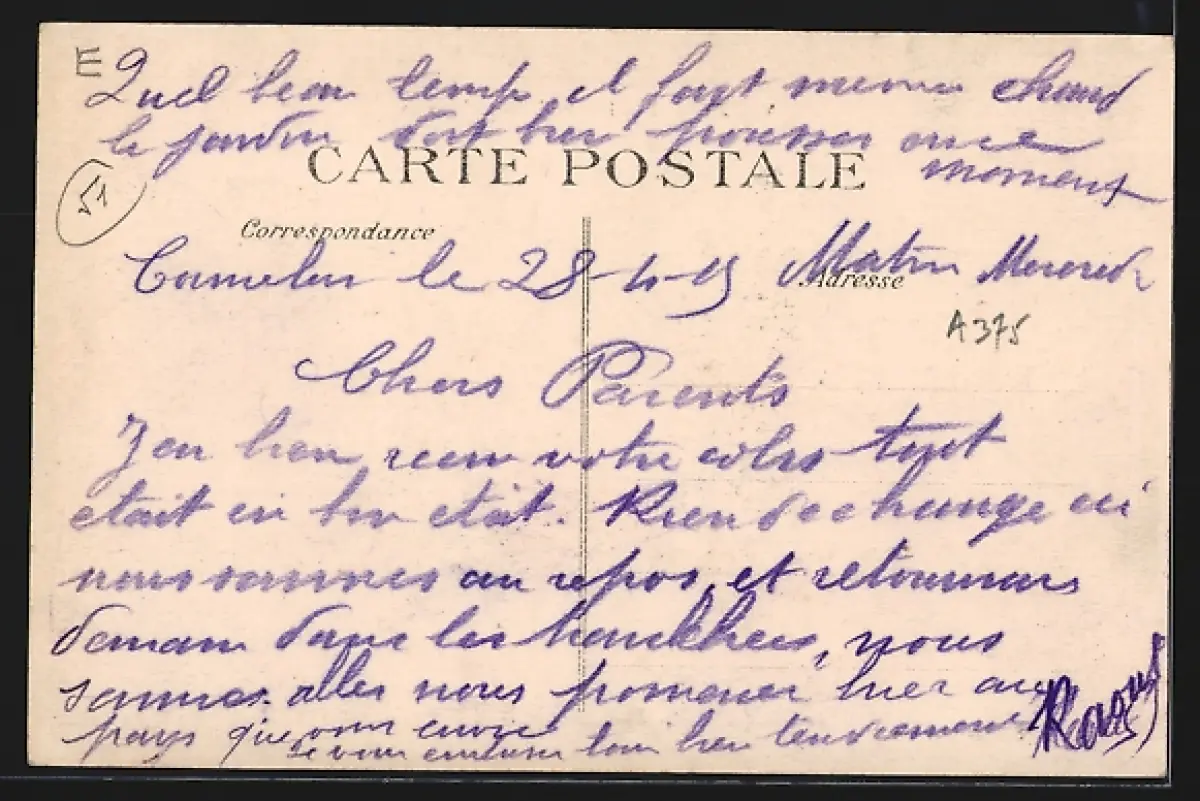 E
Quel beau temps, il fait meme chaud
le jardin doit bien pousser en ce
moment
CARTE POSTALE
51
Correspondance
Adresse
le 28-4-15 Matin Mercredi
A375
Chers Parents
J'ai bien recu votre colis tout
etait en bon etat. Rien de change ici
nous sommes au repos, et retournons
demain dans les tranchees, nous
sommes alles nous promener hier au
pays que vous
je vous embrasse tous bien tendrement